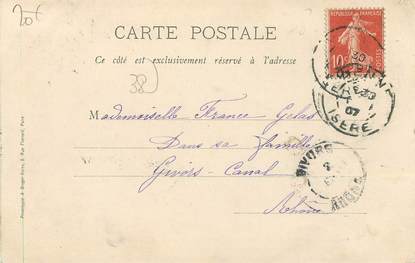 20f
CARTE POSTALE
Ce côté est exclusivement réservé à l'adresse
38
REPUBLIQUE FRANÇAISE
10c
POSTES
VIENNE
ISERE
30
07
Mademoiselle France Gelas
Dans sa famille
Givors-Canal
Rhône
GIVORS
RHONE